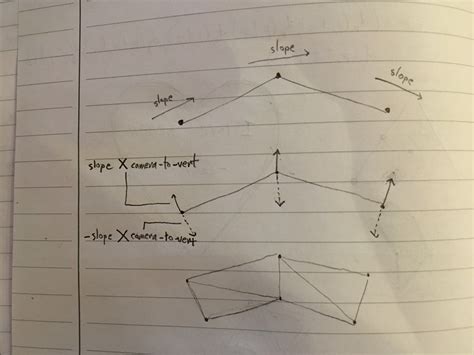 slope
slope
slope
slope X camera-to-vert
-slope X camera-to-vert